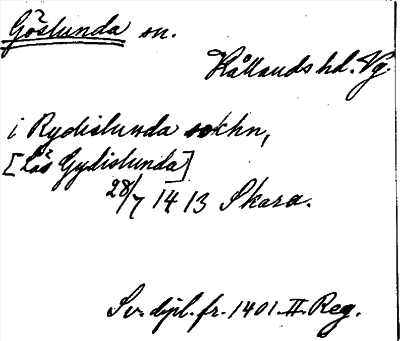 Göslunda sn.
Kållands hd. Vg.
i Rydislunda sokhn,
[Läs Gydislunda]
28/7 1413 Skara.
Sv. dipl. fr. 1401. II. Reg.